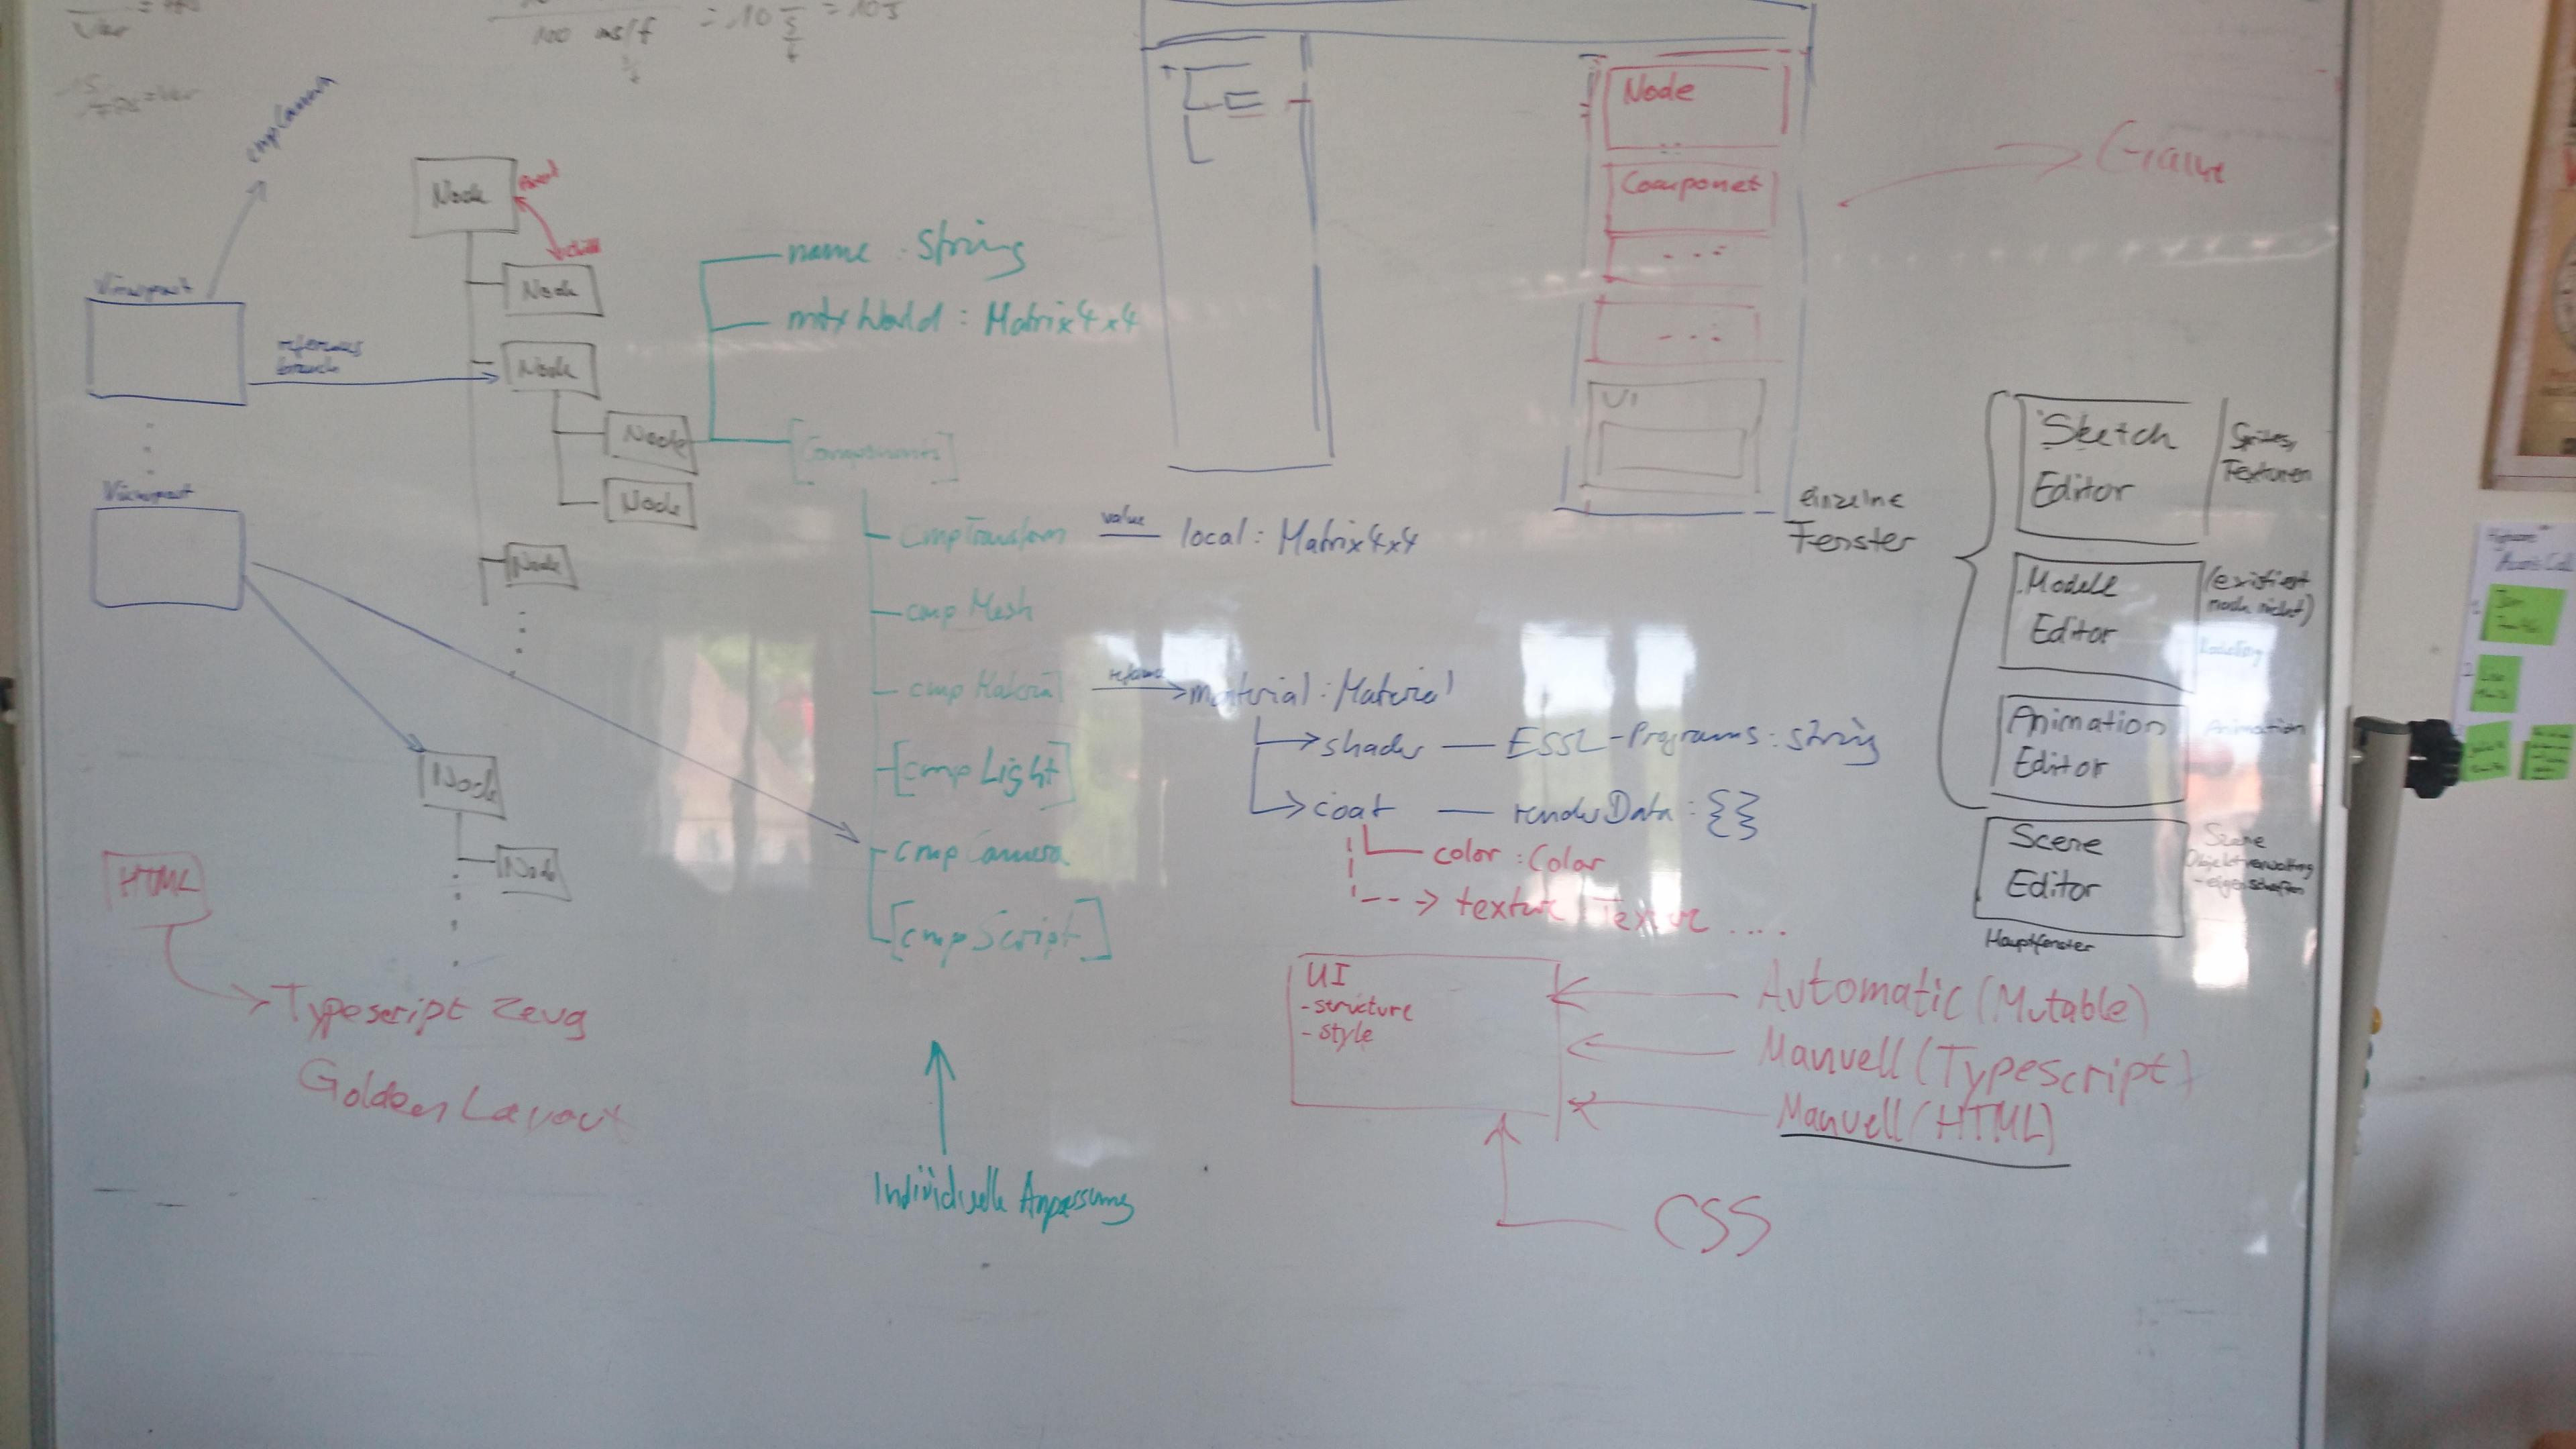 100 ms/f
cmpCamera
Viewport
reference
branch
Viewport
Node
Parent
child
Node
Node
Node
Node
Node
Node
Node
name : String
mtxWorld : Matrix4x4
[Components]
cmpTransform
value
local : Matrix4x4
cmpMesh
cmpMaterial
material : Material
shader — ESSL-Programs : string
coat — renderData : {}
color : Color
texture Texture ....
[cmpLight]
cmpCamera
[cmpScript]
Individuelle Anpassung
HTML
Typescript Zeug
Golden Layout
Node
Componet
...
...
UI
einzelne
Fenster
Game
Sketch
Editor
Sprites,
Texturen
Modell
Editor
(existiert
noch nicht)
Modeling
Animation
Editor
Animation
Scene
Editor
Szene
Objektverwaltung
-eigenschaften
Hauptfenster
UI
- structure
- style
Automatic (Mutable)
Manuell (Typescript)
Manuell (HTML)
CSS